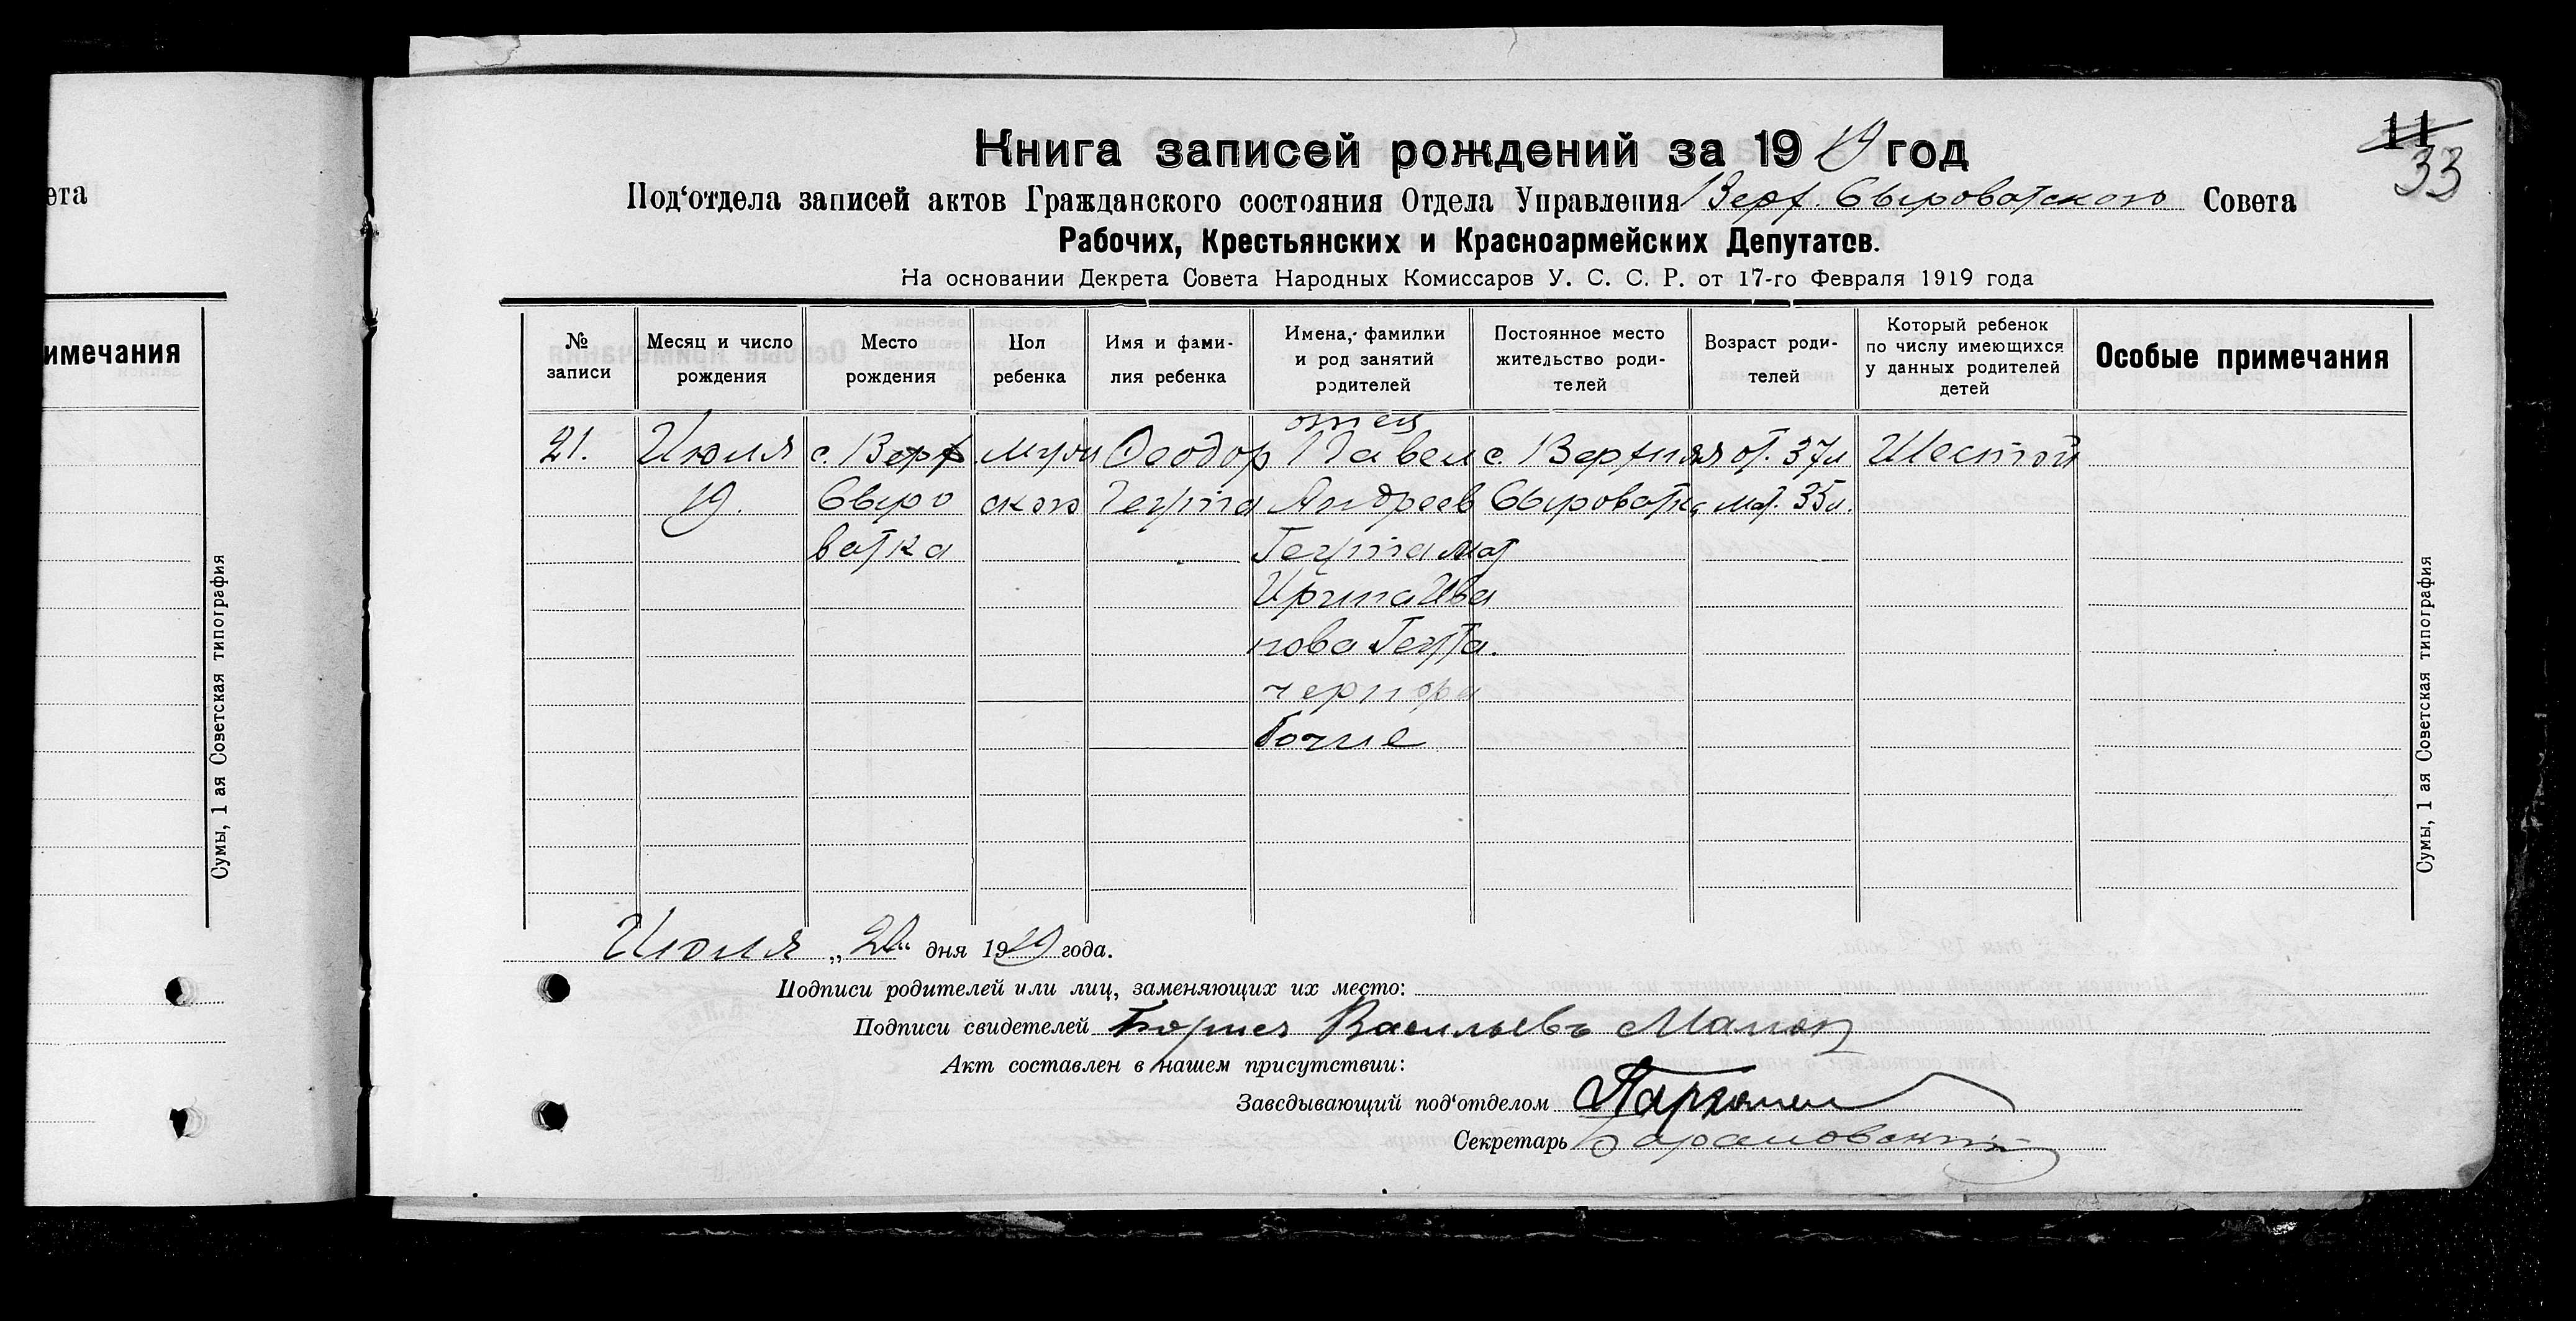 11
33
ета
имечания
Сумы, 1 ая Советская типография
Книга записей рождений за 1919 год
Под‘отдела записей актов Гражданского состояния Отдела Управления Верх. Сыроватского Совета
Рабочих, Крестьянских и Красноармейских Депутатов.
На основании Декрета Совета Народных Комиссаров У. С. С. Р. от 17-го Февраля 1919 года
№ записи
Месяц и число рождения
Место рождения
Пол ребенка
Имя и фами-
лия ребенка
Имена, фамилии
и род занятий
родителей
Постоянное место
жительство роди-
телей
Возраст роди-
телей
Который ребенок
по числу имеющихся
у данных родителей
детей
Особые примечания
отец
21. Июля с. Верх мужи Феодор Павел с. Верхняя от. 37л Шестой
19. Сыро ского Андреев Сыроватка мат. 35л.
ватка мат
Ирина Ива
нова
черпора
бочие
Июля „20“ дня 1919 года.
Подписи родителей или лиц, заменяющих их место:
Подписи свидетелей Борись Васильевъ
Акт составлен в нашем присутствии:
Заведывающий под‘отделом
Секретарь Барановский
Сумы, 1 ая Советская типография